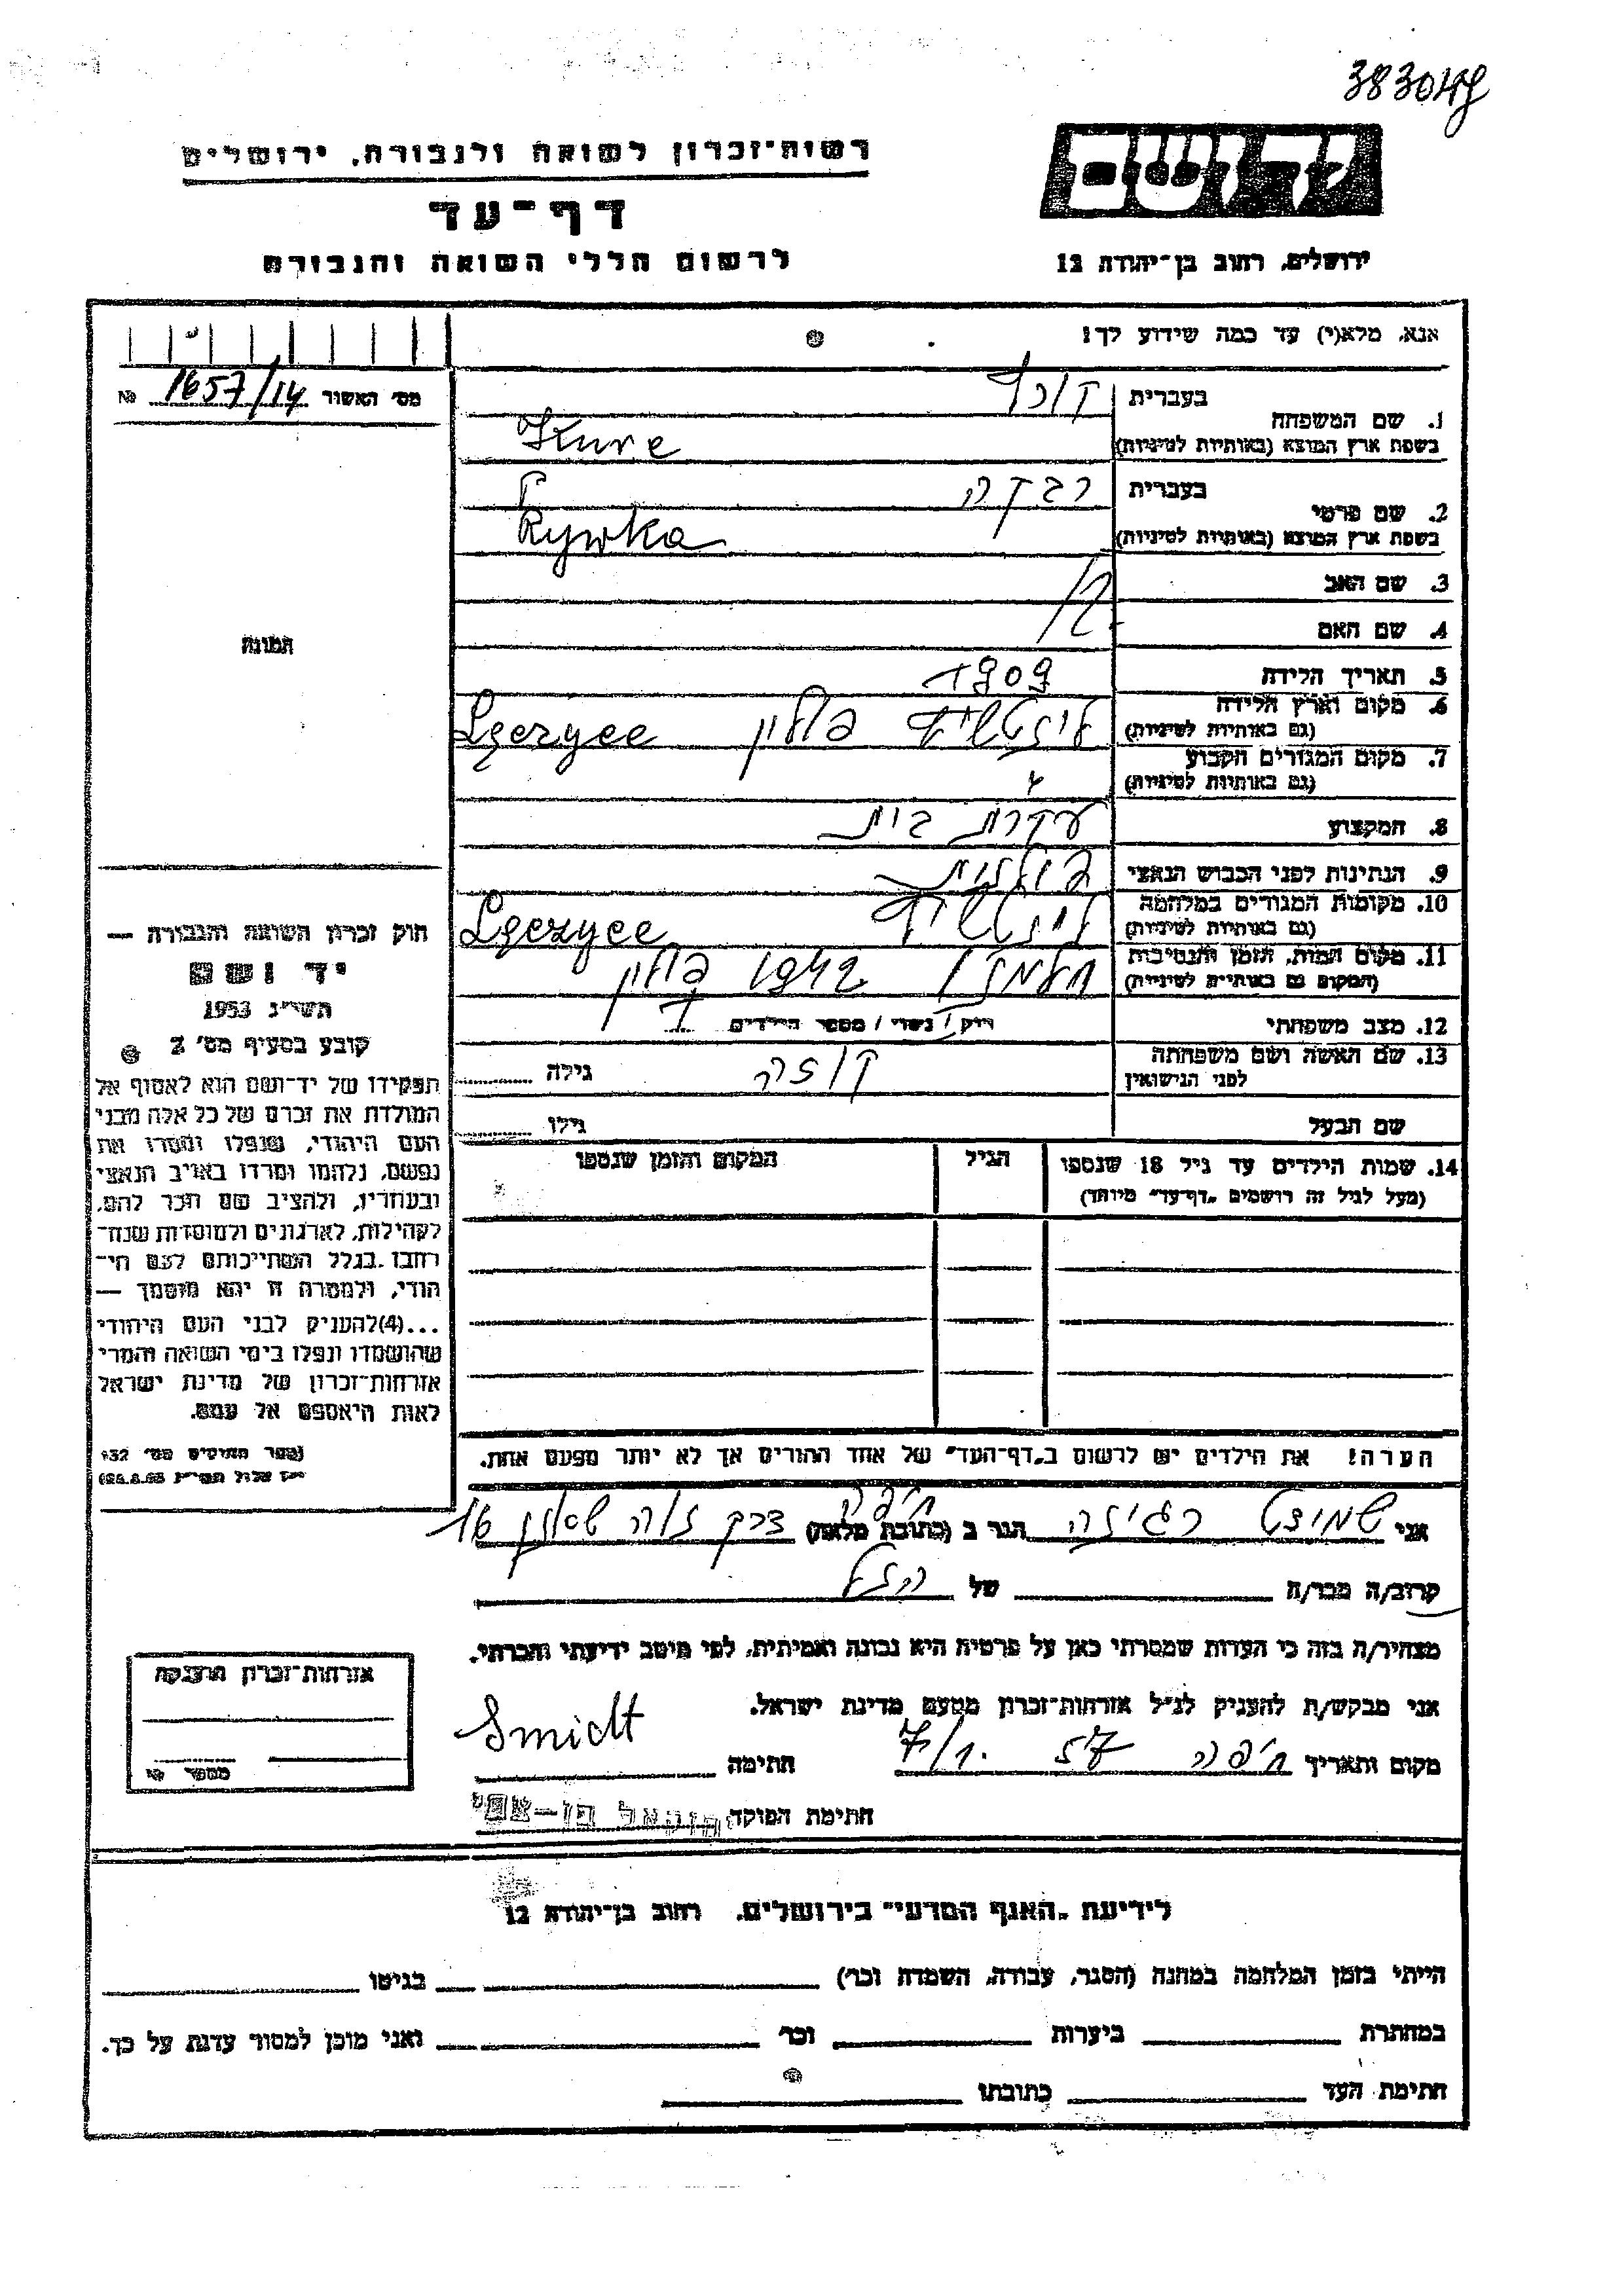 383049
רשות־זכרון לשואה ולגבורה, ירושלים
ידושם
דף־עד
לרשום חללי השואה והגבורה
ירושלים, רחוב בן־יהודה 12
אנא, מלא(י) עד כמה שידוע לך!
מס' האשור 1657/14 №
1. שם המשפחה
בעברית
בשפת ארץ המוצא (באותיות לטיניות)
2. שם פרטי
בעברית רבקה
בשפת ארץ המוצא (באותיות לטיניות) Rywka
3. שם האב
4. שם האם
5. תאריך הלידה 1909
6. מקום וארץ הלידה
(גם באותיות לטיניות) פולין
7. מקום המגורים הקבוע
(גם באותיות לטיניות)
8. המקצוע עקרת בית
9. הנתינות לפני הכבוש הנאצי פולנית
10. מקומות המגורים במלחמה
(גם באותיות לטיניות)
11. מקום המות, הזמן והנסיבות
(המקום גם באותיות לטיניות) חלמנו 1942 פולין
12. מצב משפחתי רוק / נשוי / מספר הילדים
13. שם האשה ושם משפחתה
לפני הנישואין גילה
שם הבעל גילו
14. שמות הילדים עד גיל 18 שנספו הגיל המקום והזמן שנספו
(מעל לגיל זה רושמים „דף־עד" מיוחד)
הערה! את הילדים יש לרשום ב„דף־העד" של אחד ההורים אך לא יותר מפעם אחת.
תמונה
חוק זכרון השואה והגבורה —
יד ושם
תשי"ג 1953
קובע בסעיף מס' 2
תפקידו של יד־ושם הוא לאסוף אל
המולדת את זכרם של כל אלה מבני
העם היהודי, שנפלו ומסרו את
נפשם, נלחמו ומרדו באויב הנאצי
ובעוזריו, ולהציב שם וזכר להם,
לקהילות, לארגונים ולמוסדות שנח־
רבו בגלל השתייכותם לעם הי־
הודי, ולמטרה זו יהא מוסמך —
...(4) להעניק לבני העם היהודי
שהושמדו ונפלו בימי השואה והמרי
אזרחות־זכרון של מדינת ישראל
לאות היאספם אל עמם.
אני שמידט רגינה הגר ב (כתובת מלאה) חיפה דרך נוה שאנן 16
קרוב/ה מכר/ה של הנ"ל
מצהיר/ה בזה כי העדות שמסרתי כאן על פרטיה היא נכונה ואמיתית, לפי מיטב ידיעתי והכרתי.
אני מבקש/ת להעניק לנ"ל אזרחות־זכרון מטעם מדינת ישראל.
מקום ותאריך חיפה 57 7/1. חתימה Smidt
חתימת הפוקד
אזרחות־זכרון הוענקה
מספר №
לידיעת „האגף המדעי" בירושלים, רחוב בן־יהודה 12
הייתי בזמן המלחמה במחנה (הסגר, עבודה, השמדה וכו') בגיטו
במחתרת ביערות וכו' ואני מוכן למסור עדות על כך.
חתימת העד כתובתו